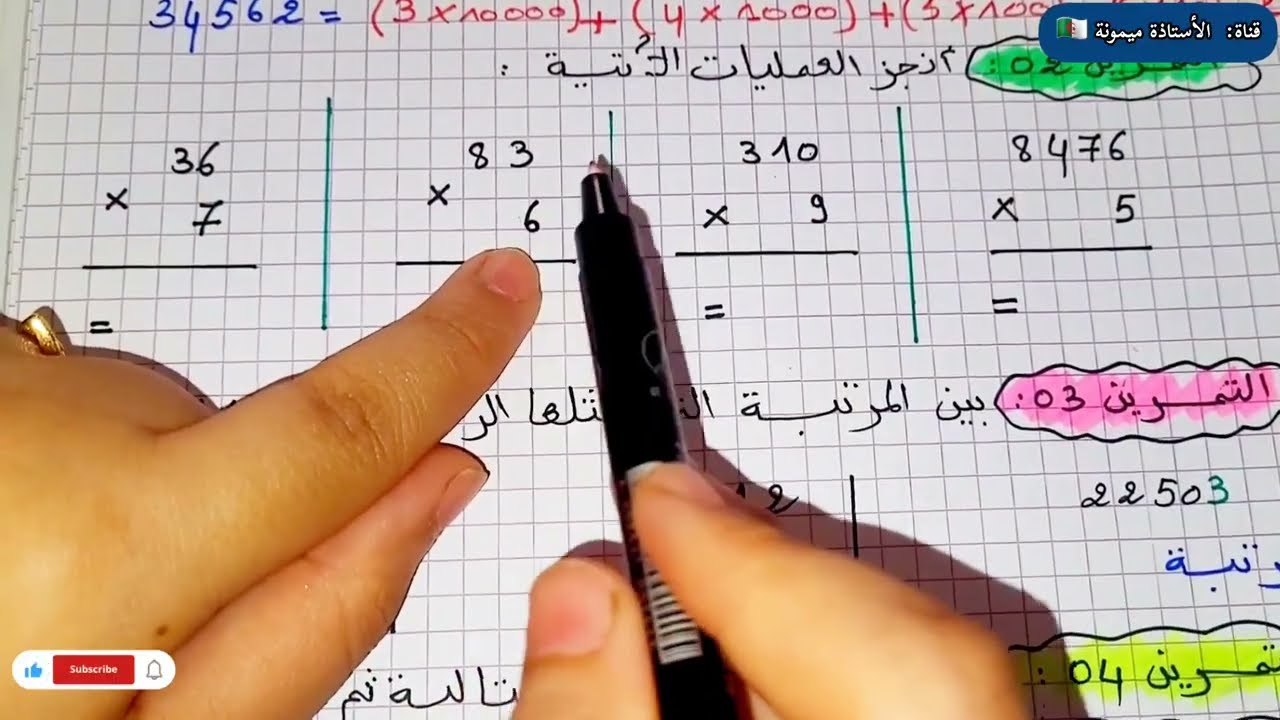 34562 = (3×10000)+(4×1000)+(5×100)
قناة: الأستاذة ميمونة
التمرين 02: أنجز العمليات الآتية :
8476
× 5
=
310
× 9
=
83
× 6
36
× 7
=
التمرين 03: بين المرتبة
22503
12
مرتبة
تمرين 04:
تالية ثم
Subscribe